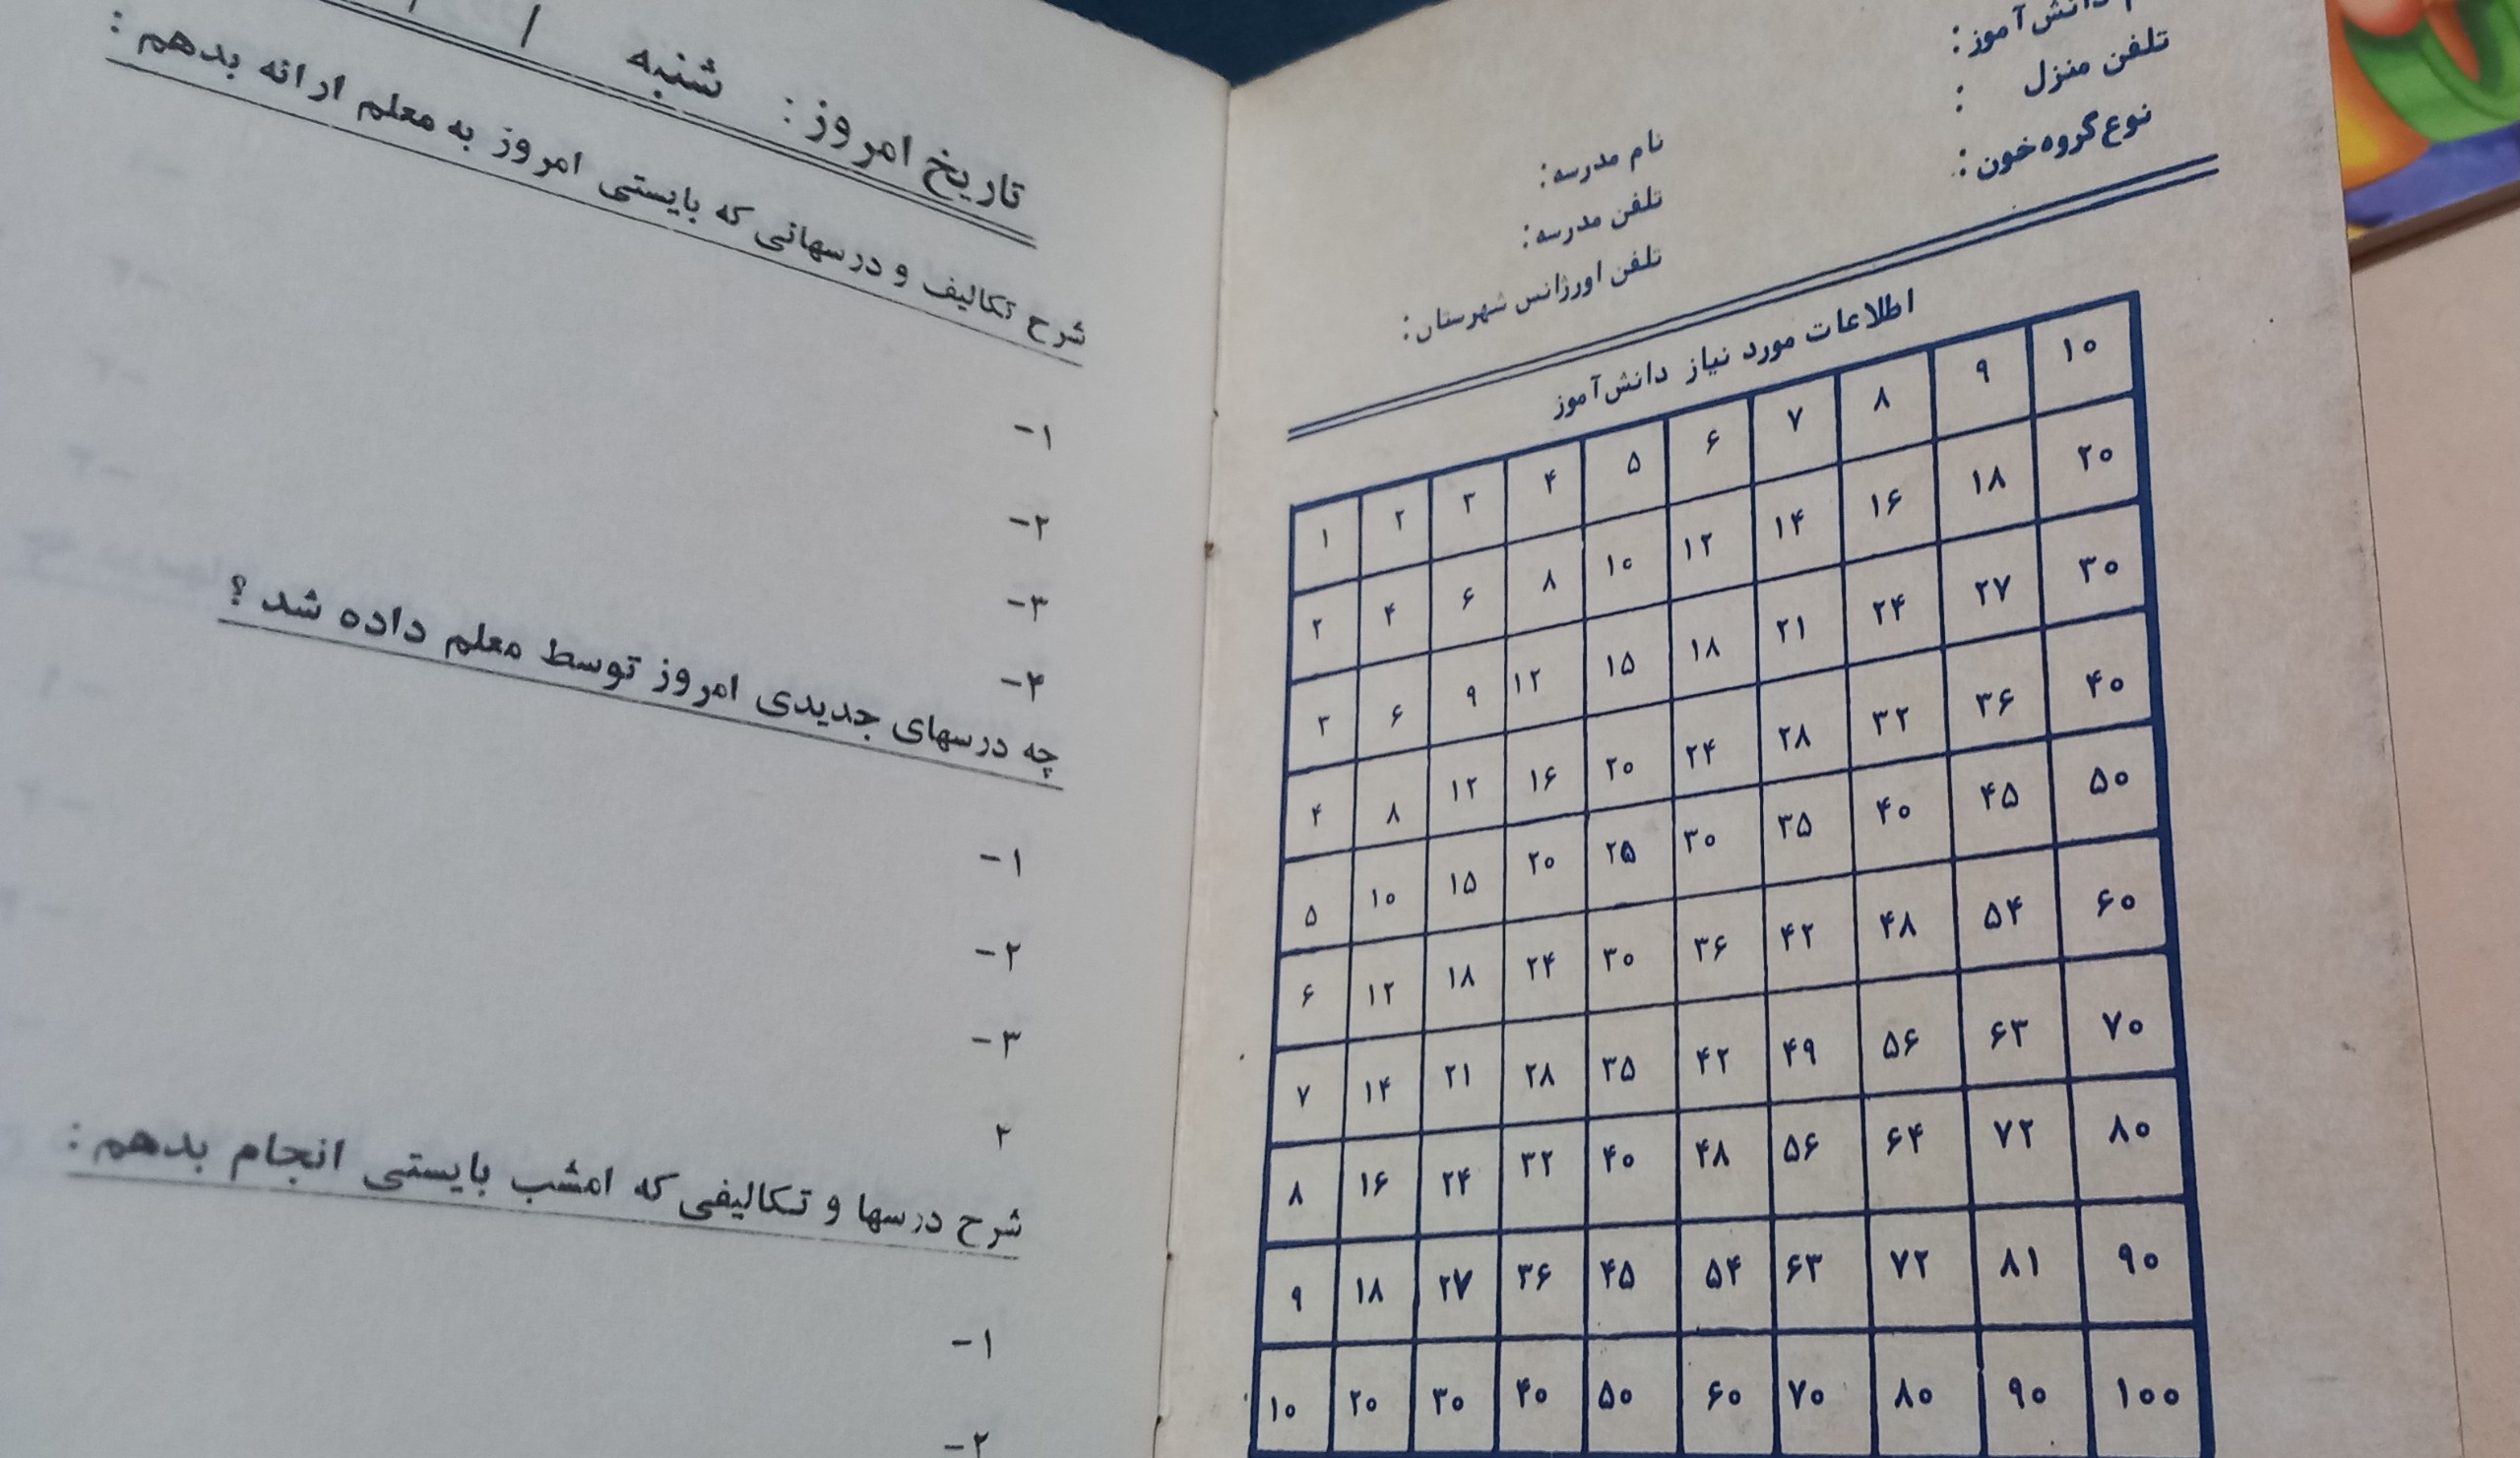 دانش‌آموز :
تلفن منزل :
نوع گروه خون :
نام مدرسه :
تلفن مدرسه :
تلفن اورژانس شهرستان :
اطلاعات مورد نیاز دانش‌آموز
۱ ۲ ۳ ۴ ۵ ۶ ۷ ۸ ۹ ۱۰
۲ ۴ ۶ ۸ ۱۰ ۱۲ ۱۴ ۱۶ ۱۸ ۲۰
۳ ۶ ۹ ۱۲ ۱۵ ۱۸ ۲۱ ۲۴ ۲۷ ۳۰
۴ ۸ ۱۲ ۱۶ ۲۰ ۲۴ ۲۸ ۳۲ ۳۶ ۴۰
۵ ۱۰ ۱۵ ۲۰ ۲۵ ۳۰ ۳۵ ۴۰ ۴۵ ۵۰
۶ ۱۲ ۱۸ ۲۴ ۳۰ ۳۶ ۴۲ ۴۸ ۵۴ ۶۰
۷ ۱۴ ۲۱ ۲۸ ۳۵ ۴۲ ۴۹ ۵۶ ۶۳ ۷۰
۸ ۱۶ ۲۴ ۳۲ ۴۰ ۴۸ ۵۶ ۶۴ ۷۲ ۸۰
۹ ۱۸ ۲۷ ۳۶ ۴۵ ۵۴ ۶۳ ۷۲ ۸۱ ۹۰
۱۰ ۲۰ ۳۰ ۴۰ ۵۰ ۶۰ ۷۰ ۸۰ ۹۰ ۱۰۰
تاریخ امروز : شنبه / /
شرح تکالیف و درسهائی که بایستی امروز به معلم ارائه بدهم :
۱-
۲-
۳-
۴-
چه درسهای جدیدی امروز توسط معلم داده شد ؟
۱-
۲-
۳-
۲
شرح درسها و تکالیفی که امشب بایستی انجام بدهم :
۱-
۲-